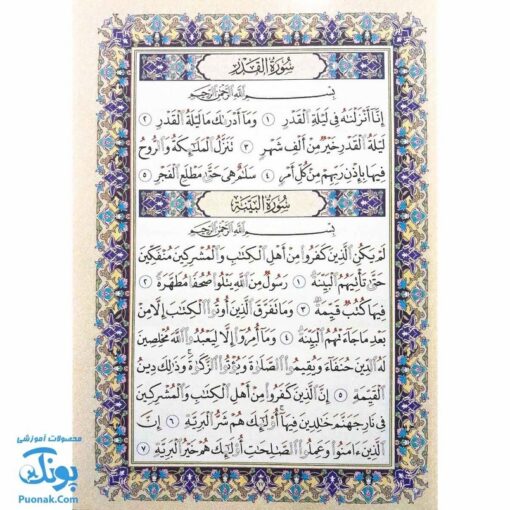 سُورَةُ القَدرِ
بِسْمِ اللَّهِ الرَّحْمٰنِ الرَّحِيمِ
إِنَّا أَنْزَلْنَاهُ فِي لَيْلَةِ الْقَدْرِ ١ وَمَا أَدْرَاكَ مَا لَيْلَةُ الْقَدْرِ ٢
لَيْلَةُ الْقَدْرِ خَيْرٌ مِنْ أَلْفِ شَهْرٍ ٣ تَنَزَّلُ الْمَلَائِكَةُ وَالرُّوحُ
فِيهَا بِإِذْنِ رَبِّهِمْ مِنْ كُلِّ أَمْرٍ ٤ سَلَامٌ هِيَ حَتَّىٰ مَطْلَعِ الْفَجْرِ ٥
سُورَةُ البَيِّنَةِ
بِسْمِ اللَّهِ الرَّحْمٰنِ الرَّحِيمِ
لَمْ يَكُنِ الَّذِينَ كَفَرُوا مِنْ أَهْلِ الْكِتَابِ وَالْمُشْرِكِينَ مُنْفَكِّينَ
حَتَّىٰ تَأْتِيَهُمُ الْبَيِّنَةُ ١ رَسُولٌ مِنَ اللَّهِ يَتْلُو صُحُفًا مُطَهَّرَةً ٢
فِيهَا كُتُبٌ قَيِّمَةٌ ٣ وَمَا تَفَرَّقَ الَّذِينَ أُوتُوا الْكِتَابَ إِلَّا مِنْ
بَعْدِ مَا جَاءَتْهُمُ الْبَيِّنَةُ ٤ وَمَا أُمِرُوا إِلَّا لِيَعْبُدُوا اللَّهَ مُخْلِصِينَ
لَهُ الدِّينَ حُنَفَاءَ وَيُقِيمُوا الصَّلَاةَ وَيُؤْتُوا الزَّكَاةَ وَذَٰلِكَ دِينُ
الْقَيِّمَةِ ٥ إِنَّ الَّذِينَ كَفَرُوا مِنْ أَهْلِ الْكِتَابِ وَالْمُشْرِكِينَ
فِي نَارِ جَهَنَّمَ خَالِدِينَ فِيهَا أُولَٰئِكَ هُمْ شَرُّ الْبَرِيَّةِ ٦ إِنَّ
الَّذِينَ آمَنُوا وَعَمِلُوا الصَّالِحَاتِ أُولَٰئِكَ هُمْ خَيْرُ الْبَرِيَّةِ ٧
محصولات آموزشی
پونک
Puonak.Com